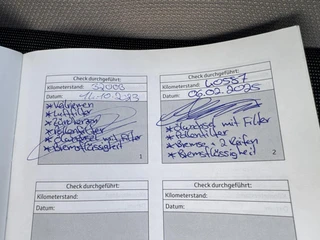 Check durchgeführt:
Kilometerstand: 32003
Datum: 11.10.23
* Keilriemen
* Luftfilter
* Zündkerzen
* Pollenfilter
* Motoröl mit Filter
* Bremsflüssigkeit
1
Check durchgeführt:
Kilometerstand: 40587
Datum: 06.02.2025
* Motoröl mit Filter
* Pollenfilter
* Bremse + 2 Reifen
* Bremsflüssigkeit
2
Check durchgeführt:
Kilometerstand:
Datum:
Check durchgeführt:
Kilometerstand:
Datum: